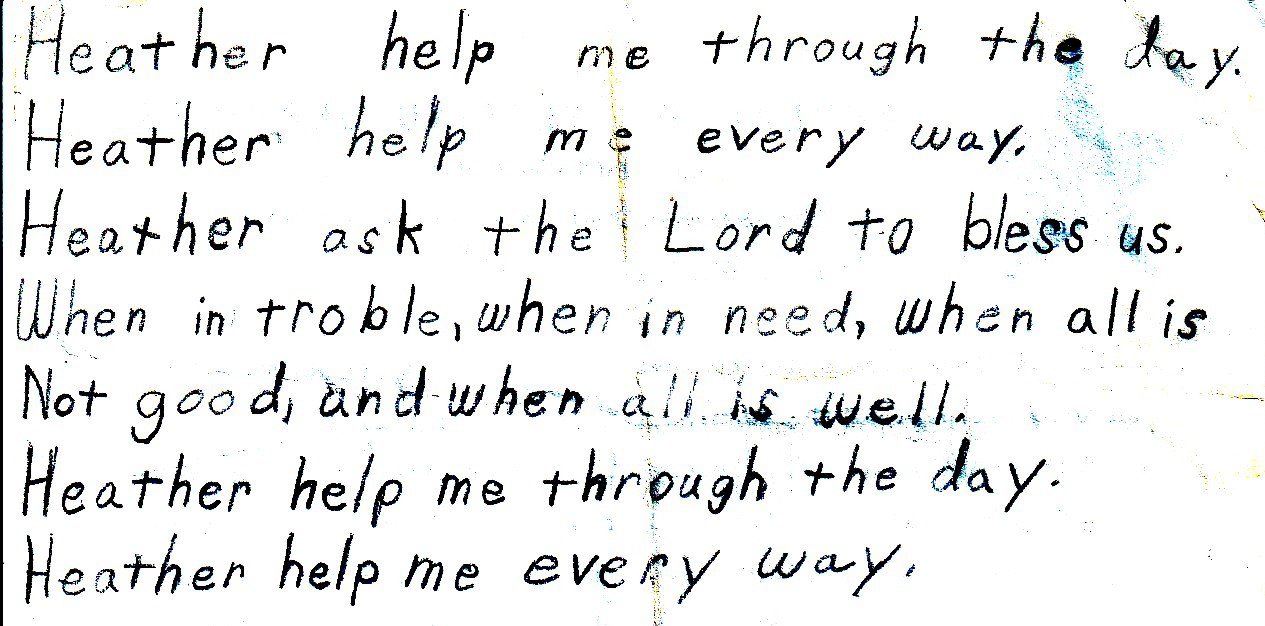 Heather help me through the day.
Heather help me every way.
Heather ask the Lord to bless us.
When in troble, when in need, when all is
Not good, and when all is well.
Heather help me through the day.
Heather help me every way.